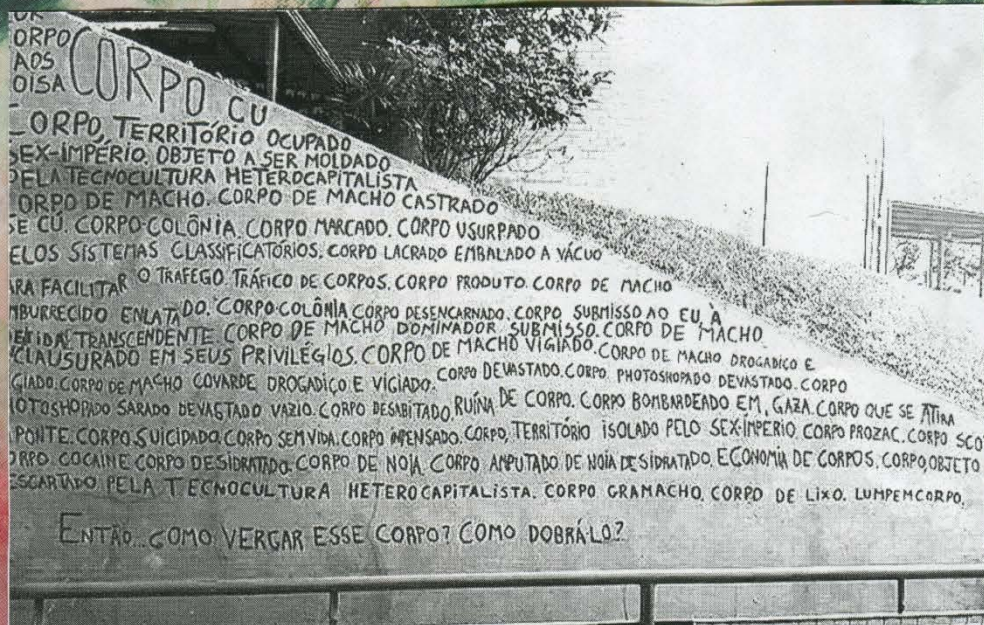 ORPO
AOS
OISA
CORPO CU
CORPO, TERRITÓRIO OCUPADO
SEX-IMPÉRIO. OBJETO A SER MOLDADO
PELA TECNOCULTURA HETEROCAPITALISTA
CORPO DE MACHO. CORPO DE MACHO CASTRADO
SE CÚ. CORPO-COLÔNIA. CORPO MARCADO. CORPO USURPADO
ELOS SISTEMAS CLASSIFICATÓRIOS. CORPO LACRADO EMBALADO A VÁCUO
ARA FACILITAR O TRAFEGO TRÁFICO DE CORPOS. CORPO PRODUTO. CORPO DE MACHO
MBURRECIDO ENLATADO. CORPO-COLÔNIA CORPO DESENCARNADO. CORPO SUBMISSO AO EU, À
TRANSCENDENTE CORPO DE MACHO DOMINADOR SUBMISSO. CORPO DE MACHO
CLAUSURADO EM SEUS PRIVILÉGIOS. CORPO DE MACHO VIGIADO. CORPO DE MACHO DROGADIÇO E
GIADO. CORPO DE MACHO COVARDE DROGADIÇO E VIGIADO. CORPO DEVASTADO. CORPO PHOTOSHOPADO DEVASTADO. CORPO
HOTOSHOPADO SARADO DEVASTADO VAZIO. CORPO DESABITADO, RUÍNA DE CORPO. CORPO BOMBARDEADO EM GAZA. CORPO QUE SE ATIRA
PONTE. CORPO SUICIDADO. CORPO SEM VIDA. CORPO INPENSADO. CORPO, TERRITÓRIO ISOLADO PELO SEX-IMPÉRIO. CORPO PROZAC. CORPO SCO
ORPO COCAINE CORPO DESIDRATADO. CORPO DE NOIA. CORPO AMPUTADO DE NOIA DESIDRATADO. ECONOMIA DE CORPOS. CORPO, OBJETO
ESCARTADO PELA TECNOCULTURA HETEROCAPITALISTA. CORPO GRAMACHO. CORPO DE LIXO. LUMPEMCORPO.
ENTÃO... COMO VERGAR ESSE CORPO? COMO DOBRÁ-LO?